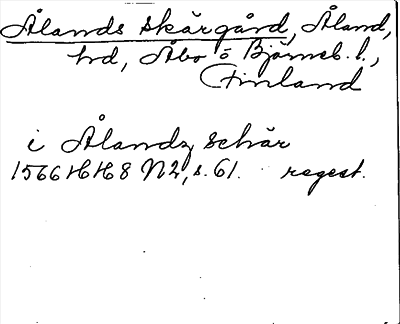 Ålands skärgård, Åland,
hd, Åbo o Björneb. l.,
Finland
i Ålandz schär
1566 HH8 N2, s. 61. regest.